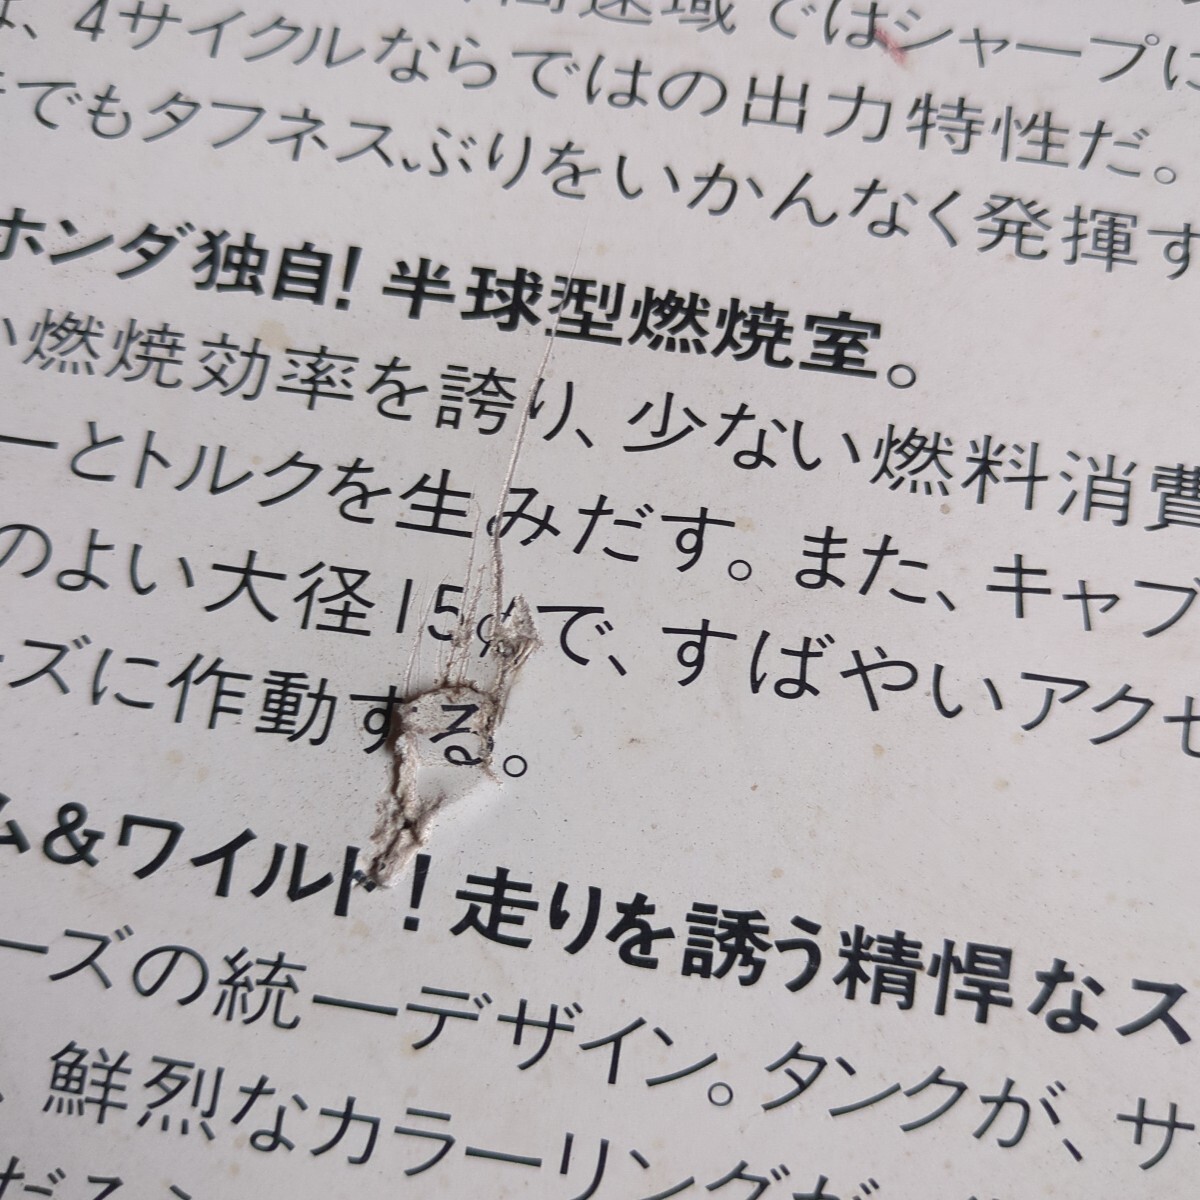 高速域ではシャープに
は、4サイクルならではの出力特性だ。
でもタフネスぶりをいかんなく発揮す
ホンダ独自!半球型燃焼室。
い燃焼効率を誇り、少ない燃料消費
ーとトルクを生みだす。また、キャブ
のよい大径15φで、すばやいアクセ
ーズに作動する。
ム&ワイルド!走りを誘う精悍なス
ーズの統一デザイン。タンクが、サ
、鮮烈なカラーリングが